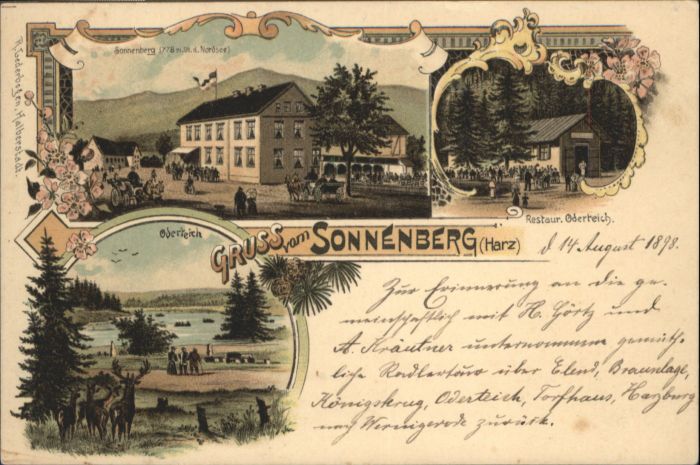 Sonnenberg (778 m. üb. d. Nordsee)
R. Lederbogen, Halberstadt.
Restaur. Oderteich.
Oderteich
GRUSS vom SONNENBERG (Harz)
d 14 August 1898.
Zur Erinnerung an die ge-
meinschaftlich mit H. Görtz und
A. Kräutner unternommene gemüth-
liche Radlertour über Elend, Braunlage,
Königskrug, Oderteich, Torfhaus, Harzburg
nach Wernigerode zurück.